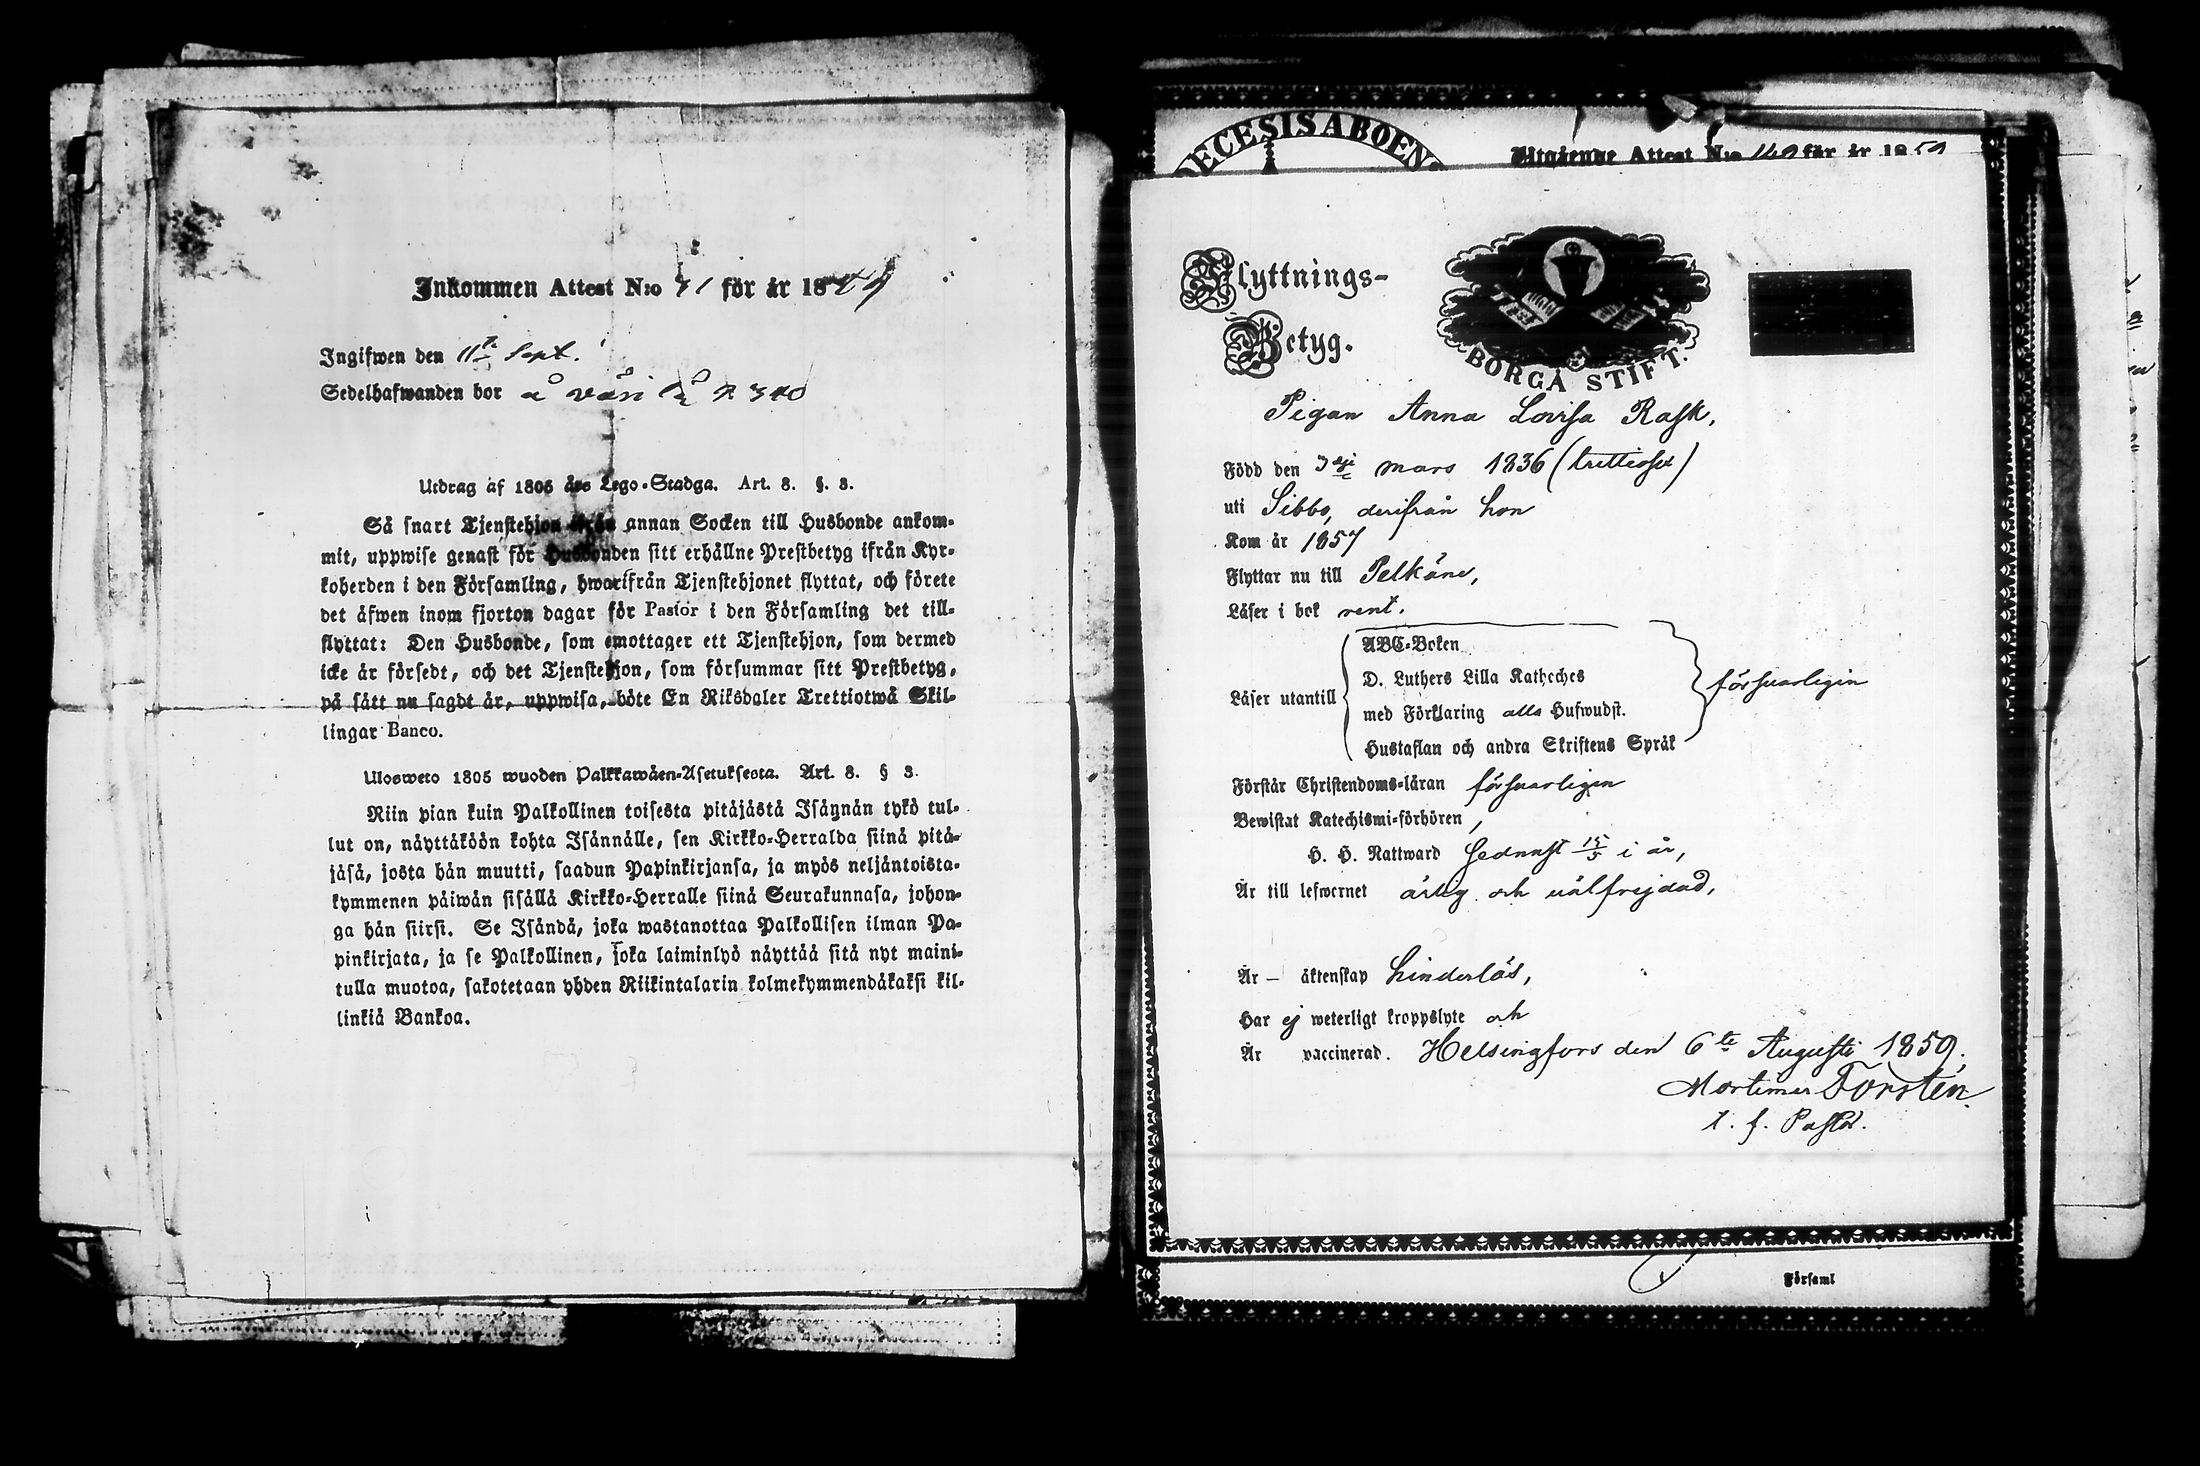 Inkommen Attest N:o 41 för år 1859
Ingifwen den 11te Sept.
Sedelhafwanden bor å
Utdrag af 1805 års Lego-Stadga. Art. 8. §. 3.
Så snart Tjenstehjon ifrån annan Socken till Husbonde ankom-
mit, uppwise genast för Husbonden sitt erhållne Prestbetyg ifrån Kyr-
koherden i den Församling, hwarifrån Tjenstehjonet flyttat, och förete
det äfwen inom fjorton dagar för Pastor i den Församling det till-
flyttat: Den Husbonde, som emottager ett Tjenstehjon, som dermed
icke är försedt, och det Tjenstehjon, som försummar sitt Prestbetyg,
på sätt nu sagdt är, uppwisa, böte En Riksdaler Trettiotwå Skil-
lingar Banco.
Ulosweto 1805 wuoden Palkkawäen-Asetuksesta. Art. 8. § 3.
Niin pian kuin Palkollinen toisesta pitäjästä Isäynän tykö tul-
lut on, näyttäköön kohta Isännälle, sen Kirkko-Herralda siinä pitä-
jäsä, josta hän muutti, saadun Papinkirjansa, ja myös neljäntoista-
kymmenen päiwän sisällä Kirkko-Herralle siinä Seurakunnasa, johon-
ga hän siirsi. Se Isändä, joka wastanottaa Palkollisen ilman Pa-
pinkirjata, ja se Palkollinen, joka laiminlyö näyttää sitä nyt maini-
tulla muotoa, sakotetaan yhden Riikintalarin kolmekymmendäkaksi kil-
linkiä Bankoa.
DECESIS ABOEN
Utgående Attest N:o 149 för år 1859
Flyttnings-
Betyg.
BORGÅ STIFT.
Pigan Anna Lovisa Rask,
Född den 3dje mars 1836 (trettiosex)
uti Sibbo, derifrån hon
Kom år 1857
Flyttar nu till Pelkäne,
Läser i bok rent.
Läser utantill
ABC-Boken
D. Luthers Lilla Katheches
med Förklaring alla Hufwudst.
Hustaflan och andra Skriftens Språk
försvarligen
Förstår Christendoms-läran försvarligen
Bewistat Katechismi-förhören,
H. H. Nattward sednast 15/5 i år,
Är till lefwernet ärlig och välfrejdad,
Är – äktenskap hinderlös,
Har ej weterligt kroppslyte och
Är vaccinerad. Helsingfors den 6te Augusti 1859.
Mortimer Forstén
t. f. Pastor.
Församl